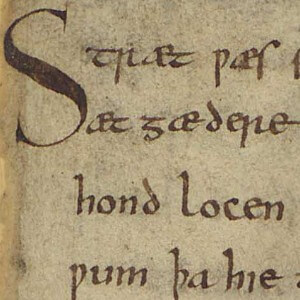 Stræt ƿæs
æt gædere
hond locen
ƿum þa hie